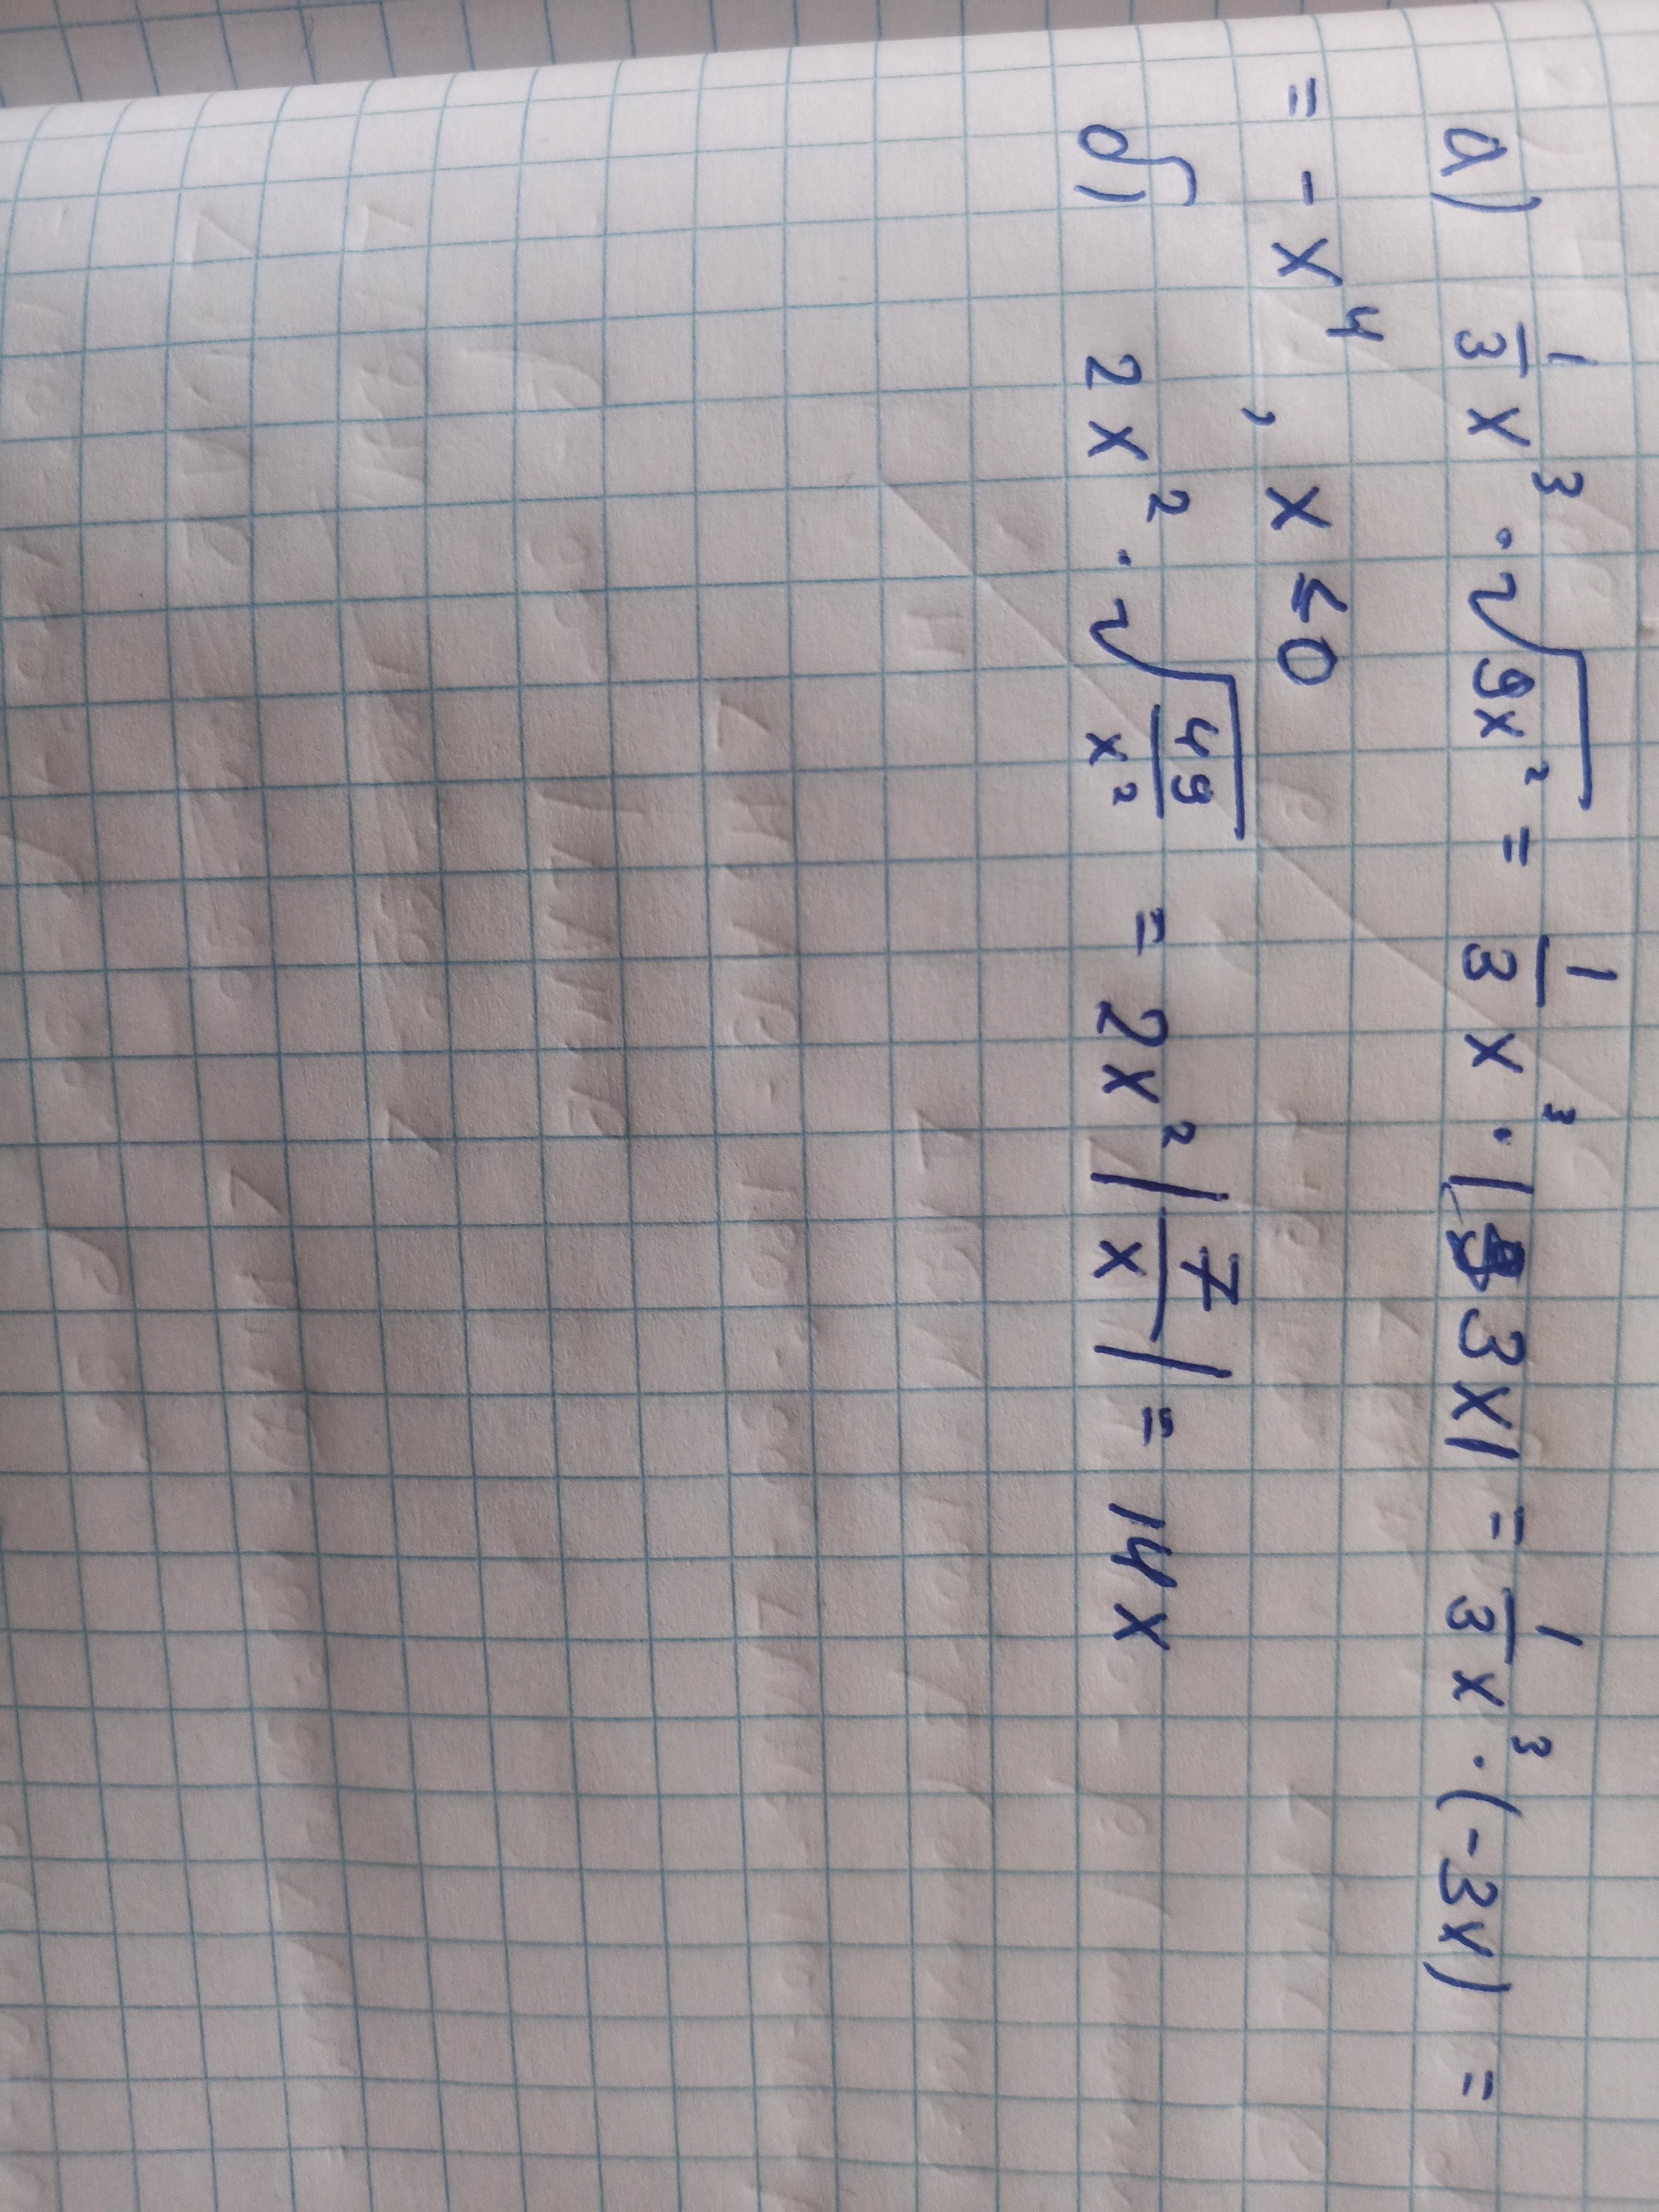 а) 1/3 x³ · √(9x²) = 1/3 x³ · |3x| = 1/3 x³ · (-3x) =
= - x⁴, x ≤ 0
б) 2x² · √(49/x²) = 2x² |7/x| = 14x